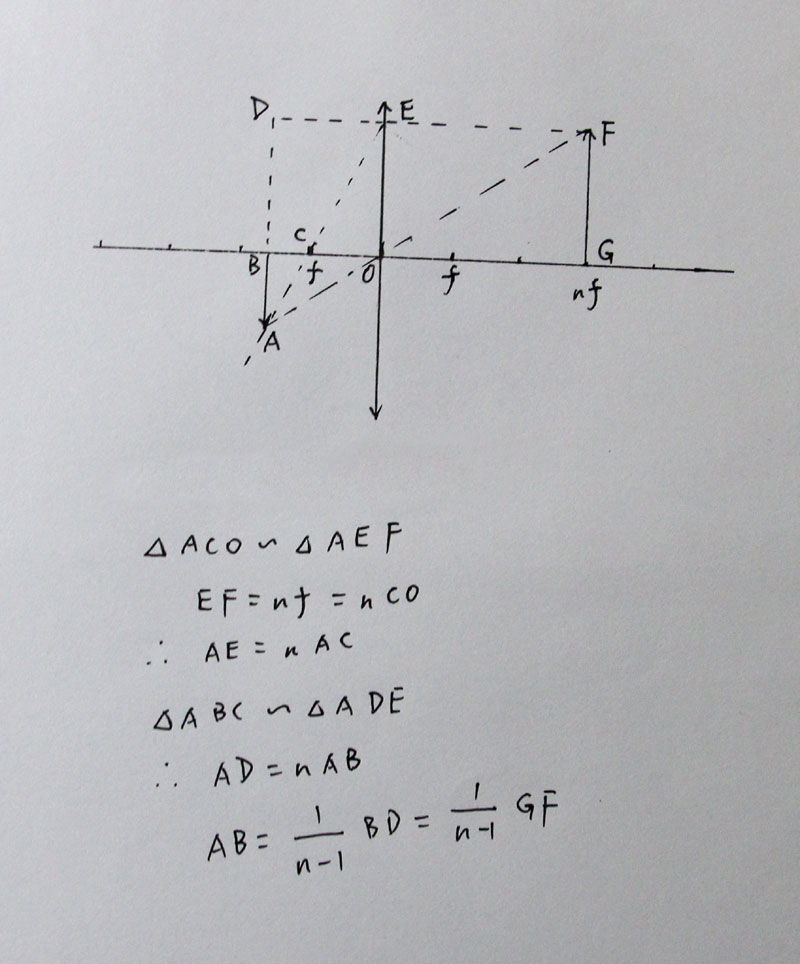 D E F
C G
B f O f nf
A
△ACO ∽ △AEF
EF = nf = nCO
∴ AE = nAC
△ABC ∽ △ADE
∴ AD = nAB
AB = 1/(n-1) BD = 1/(n-1) GF